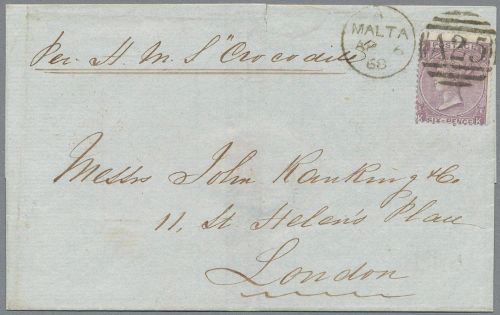 MALTA
AP 6
68
A25
POSTAGE
SIX PENCE
K
Per H M S "Crocodile"
Messrs John Ranking & Co
11, St Helen's Place
London